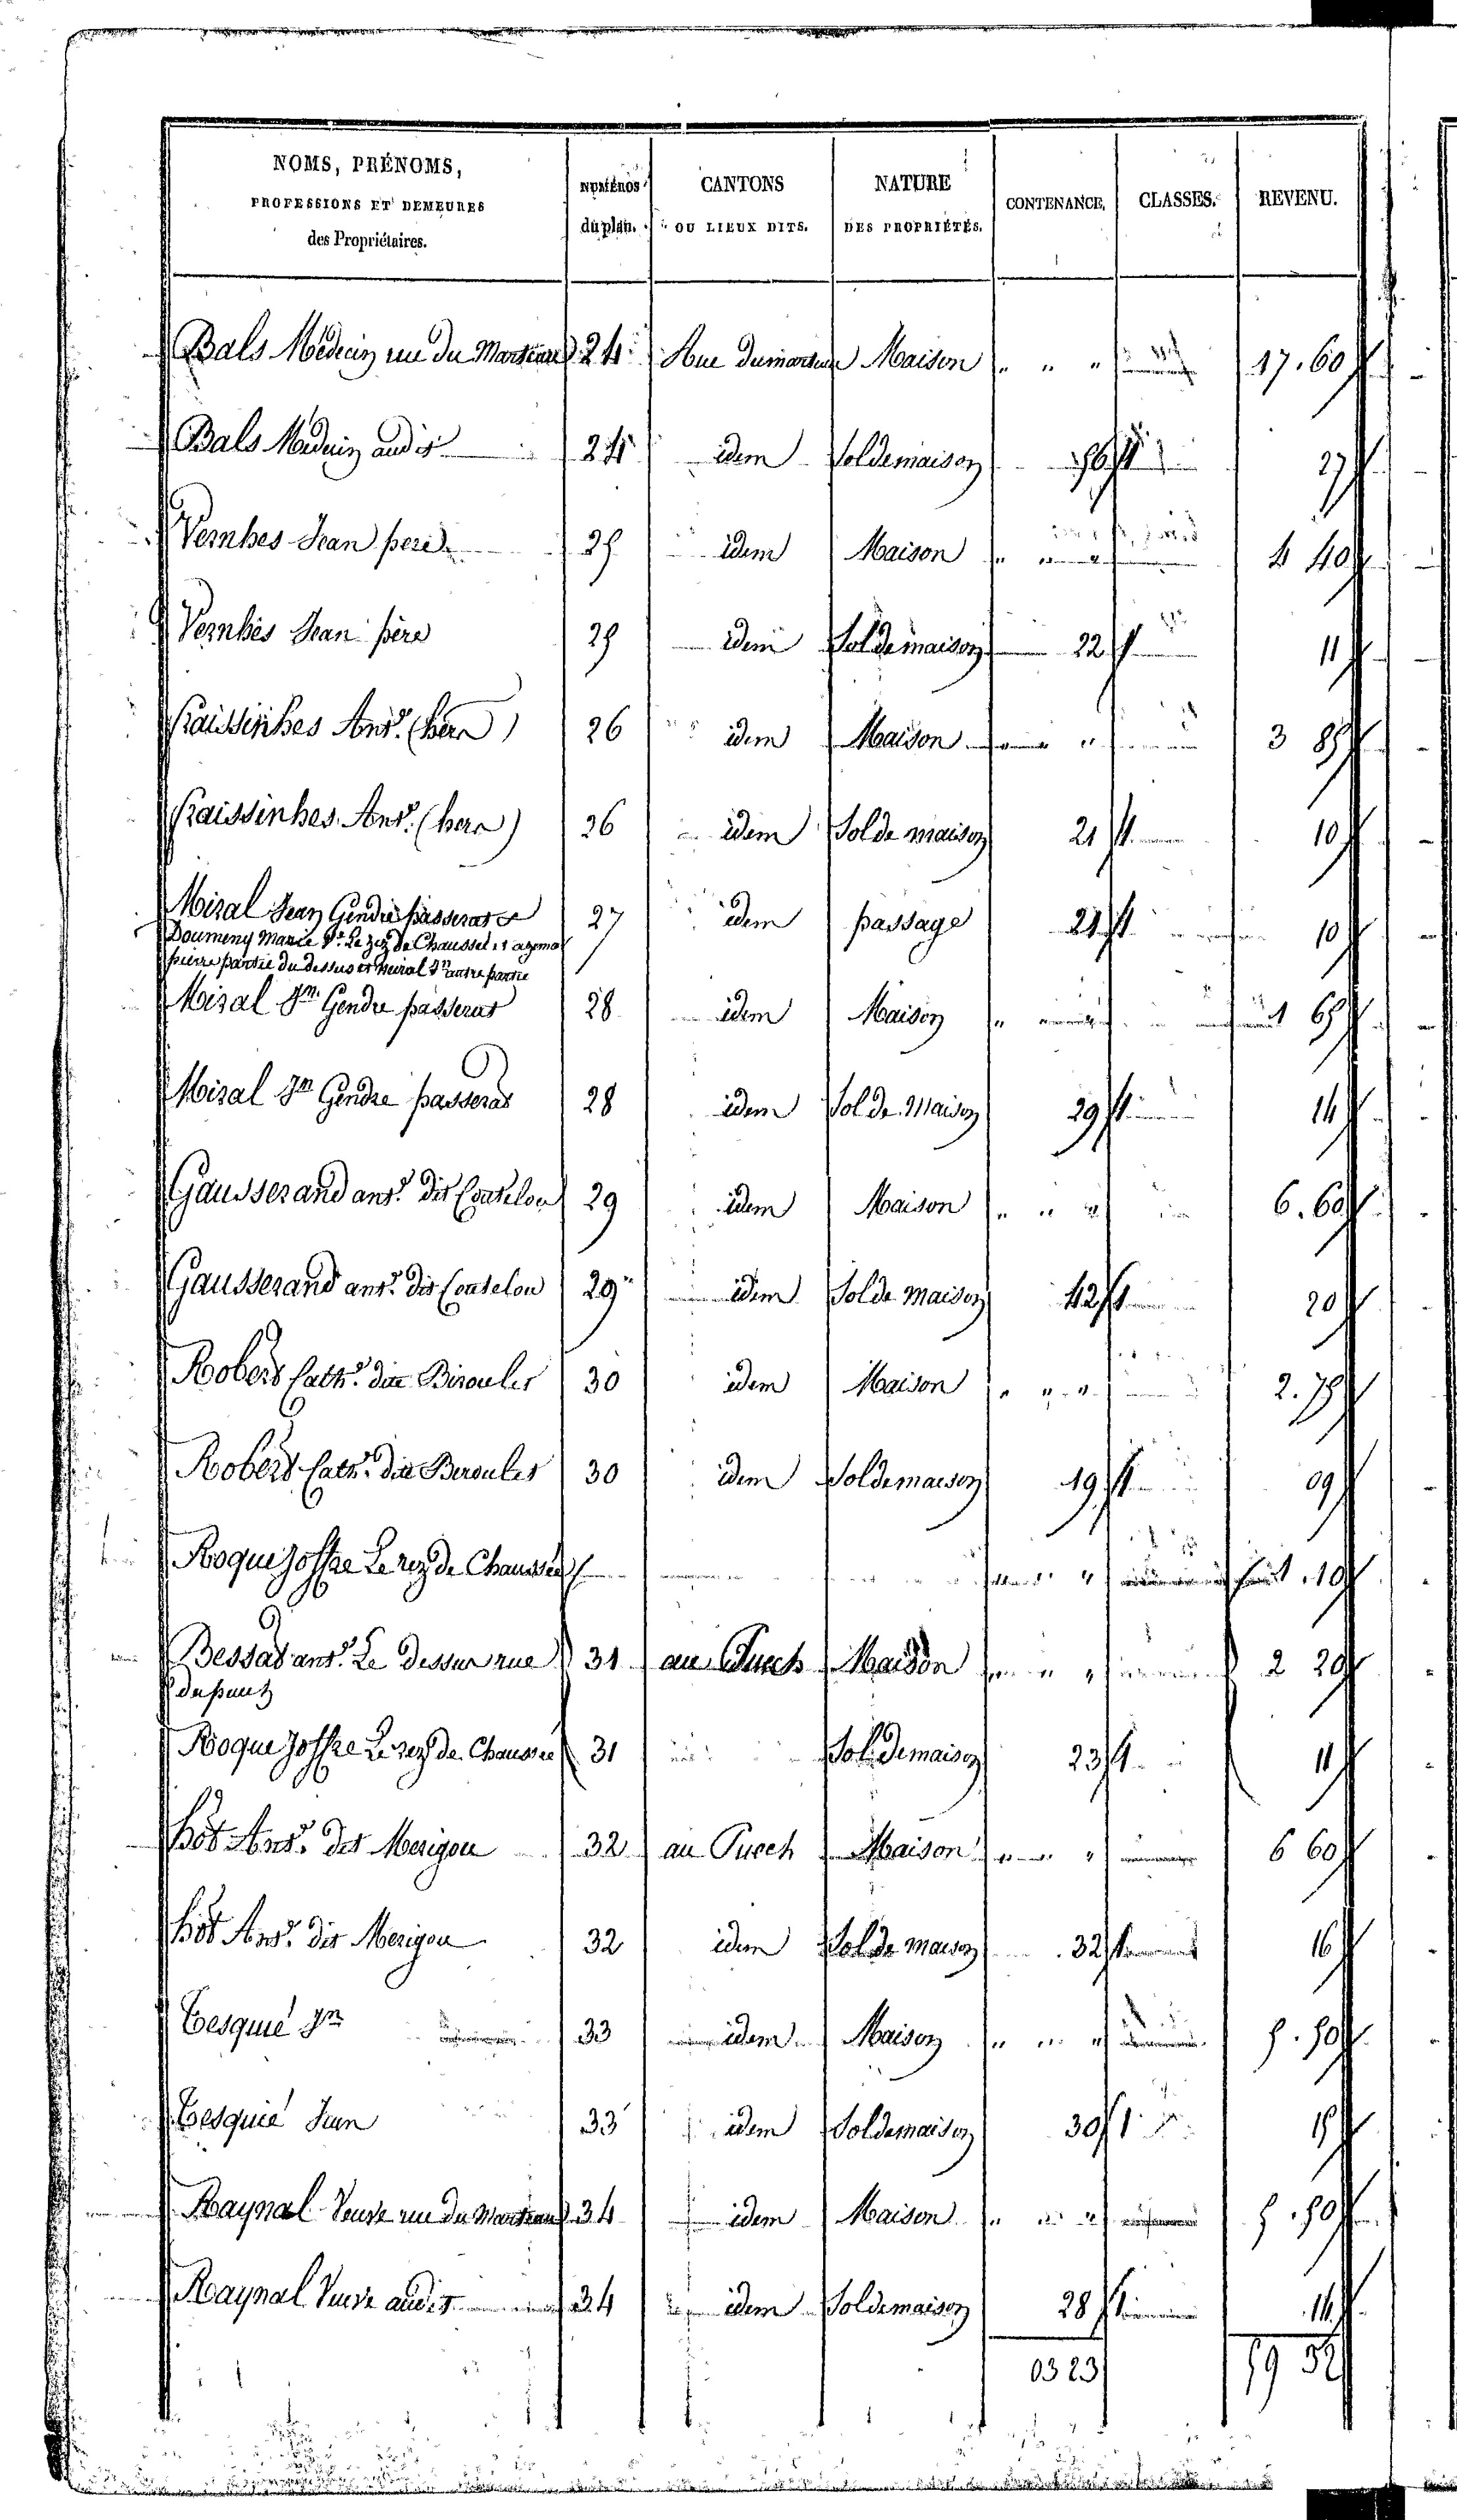 NOMS, PRÉNOMS, PROFESSIONS ET DEMEURES des Propriétaires. NUMÉROS du plan. CANTONS OU LIEUX DITS. NATURE DES PROPRIÉTÉS. CONTENANCE. CLASSES. REVENU.
Bals Médecin rue du Marteau 24 Rue du marteau Maison " " " 17.60
Bals Médecin audit 24 idem Sol de maison 27
Vernhes Jean pere 25 idem Maison " " " 4 40
Vernhes Jean père 25 idem Sol de maison 22 11
Raissinhes Ant. (hers) 26 idem Maison " " 3 85
Raissinhes Ant. (hers) 26 idem Sol de maison 21 10
Miral Jean Gendre passerat 27 idem passage 21 10
Doumeng Marie Le rez de Chaussée
pierre partie du dessus et autre partie
Miral Jn Gendre passerat 28 idem Maison " 65
Miral Jn Gendre passerat 28 idem Sol de Maison 29 14
Gausserand ant. dit Coutelou 29 idem Maison " " " 6.60
Gausserand ant. dit Coutelou 29 idem Sol de maison 42 20
Robert Cath. dite Biroules 30 idem Maison " " " 2.75
Robert Cath. dite Biroules 30 idem Sol de maison 19 09
Roque Joffre Le rez de Chaussée " 1.10
Bessat ant. Le Dessus rue 31 au Puech Maison " " " 2 20
du puech
Roque Joffre Le rez de Chaussée 31 Sol de maison 23 11
hot Ant. dit Merigou 32 au Puech Maison " " " 6 60
hot Ant. dit Merigou 32 idem Sol de maison 32 16
Tesquié Jn 33 idem Maison " " " 5.50
Tesquié Jean 33 idem Sol de maison 30 15
Raynal Veuve rue du Marteau 34 idem Maison " " " 5.50
Raynal Veuve audit 34 idem Sol de maison 28 14
03 23 59 52